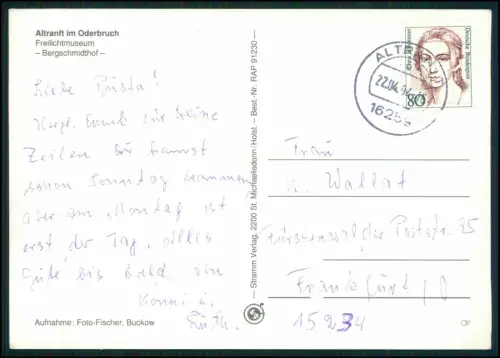 Altranft im Oderbruch
Freilichtmuseum
– Bergschmidthof –
Liebe Christa!
Herzl. Dank für Deine
Zeilen. Du kannst
schon Sonntag kommen
aber am Montag ist
erst der Tag. Alles
Gute bis bald. von
Konni u.
Ruth.
Aufnahme: Foto-Fischer, Buckow
– Stramm Verlag, 2200 St. Michaelisdonn/Holst. – Best.-Nr. RAP 91230 –
ALTR
22.04.94
16259
Deutsche Bundespost
80
Frau
Wallat
Fürstenwalder Poststr. 25
Frankfurt /O
15234